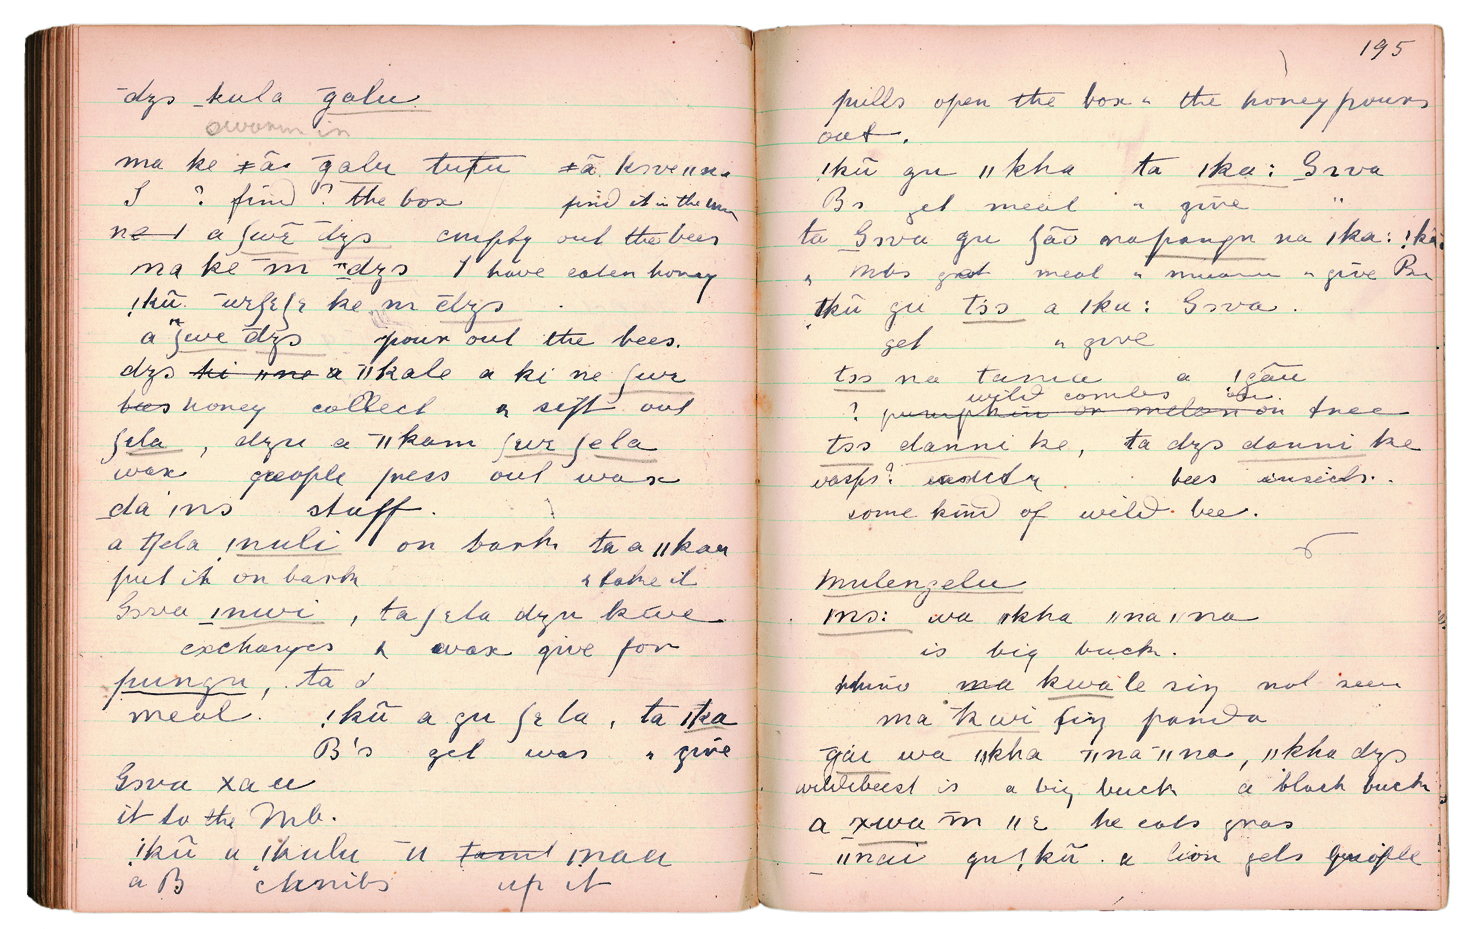 dzs kula galu
swarm in
ma ke ǂā galu tutu ǂā, ksve ǁna
I ? find ? the box find it in the
a ʃwɛ̄ dzs empty out the bees
ma ke m dzs I have eaten honey
!kū ke m dzs
a ʃwe dzs pour out the bees.
dzs ki ǁne a ǁkale a ki ne ʃwɛ
bees honey collect & sift out
ʃela, dzu a ǁkam ʃwɛ ʃela
wax people press out wax
da ins stuff.
a tʃela ǀnuli on bark ta a ǁkau
put it on bark & take it
Gsva ǀnwi, ta ʃɛla dzu kwe
exchanges & wax give for
pungu, ta
meal. !kū a gu ʃɛla, ta ǀka
B's get wax " give
Gsva xau
it to the Mb.
!kū u !kulu u ǀnau
a B climbs up it
195
pulls open the box " the honey pours
out.
!kū gu ǁkha ta ǀka: Gsva
Bs get meat " give "
ta Gsva gu ʃāo mapungu na ǀka: !kū
" Mbs get meal " " give Bu
!kū gu tss a ǀka: Gsva.
get " give
tss na tama a !gāu
wild combs
? pumpkin or melon on tree
tss danni ke, ta dzs danni ke
wasps? bees insects.
some kind of wild bee.
Mulenzelu
ins: wa ǁkha ǁna ǁna
is big buck.
rhino ma kwale siŋ not seen
ma kwi ʃiŋ panda
gau wa ǁkha ǁna ǁna, ǁkha dzs
wildebeest is a big buck a black buck
a xwa m ǁɛ he eats grass
ǁnai gu !kū. a lion gets people